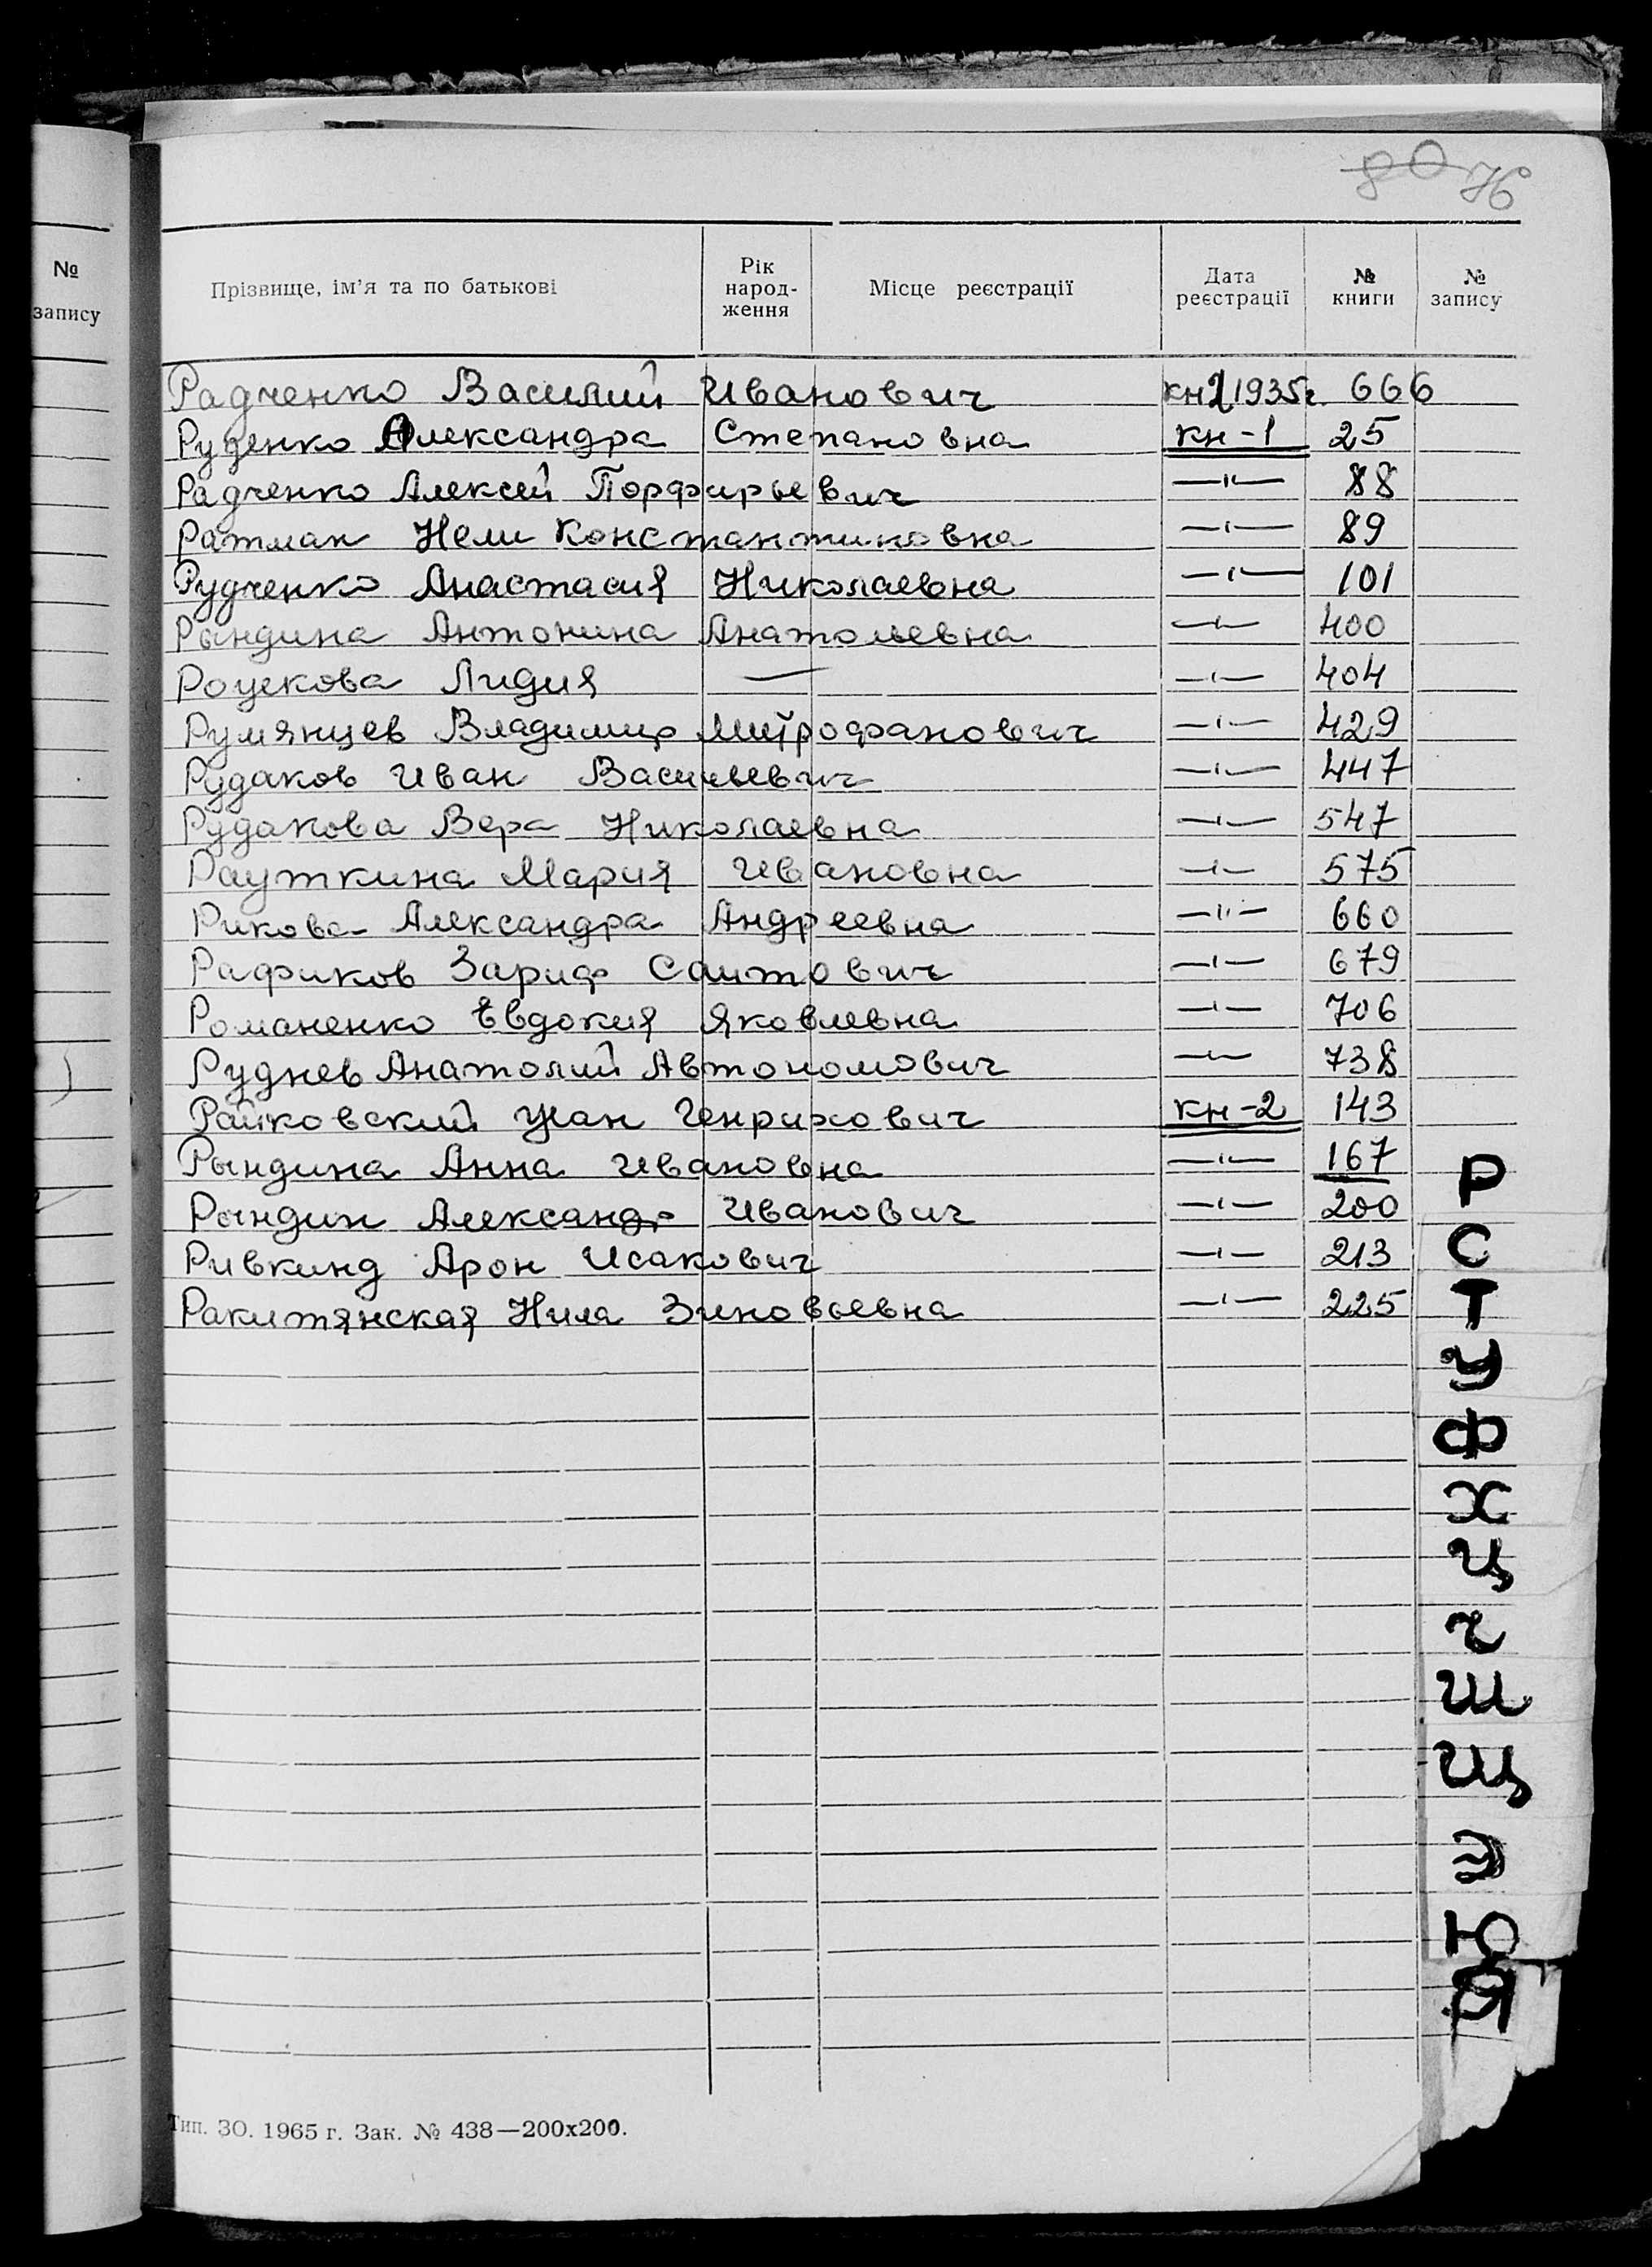 80 76
№ запису
Прізвище, ім'я та по батькові Рік народження Місце реєстрації Дата реєстрації № книги № запису
Радченко Василий Иванович кн2 1935г. 666
Руденко Александра Степановна кн-1 25
Радченко Алексей Порфирьевич —"— 88
Ратман Нели Константиновна —"— 89
Рудченко Анастасия Николаевна —"— 101
Рындина Антонина Анатольевна —"— 400
Роцекова Лидия — —"— 404
Румянцев Владимир Митрофанович —"— 429
Рудаков Иван Васильевич —"— 447
Рудакова Вера Николаевна —"— 547
Рауткина Мария Ивановна —"— 575
Рикова Александра Андреевна —"— 660
Рафиков Зариф Саитович —"— 679
Романенко Евдокия Яковлевна —"— 706
Руднев Анатолий Автономович —"— 738
Райковский Жан Генрихович кн-2 143
Рындина Анна Ивановна —"— 167
Рындин Александр Иванович —"— 200
Ривкинд Арон Исакович —"— 213
Ракитянская Нила Зиновьевна —"— 225
Р
С
Т
У
Ф
Х
Ц
Ч
Ш
Щ
Э
Ю
Я
Тип. ЗО. 1965 г. Зак. № 438—200х200.